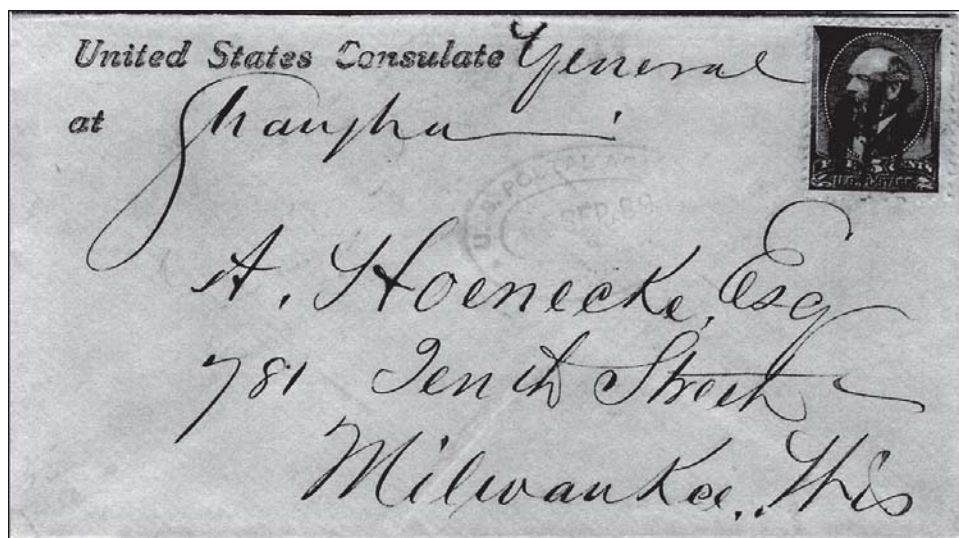 United States Consulate General
at Shanghai
U. S. POSTAL AG
SEP. 89
A. Hoenecke, Esq
781 Tenth Street
Milwaukee, Wis
U.S. POSTAGE